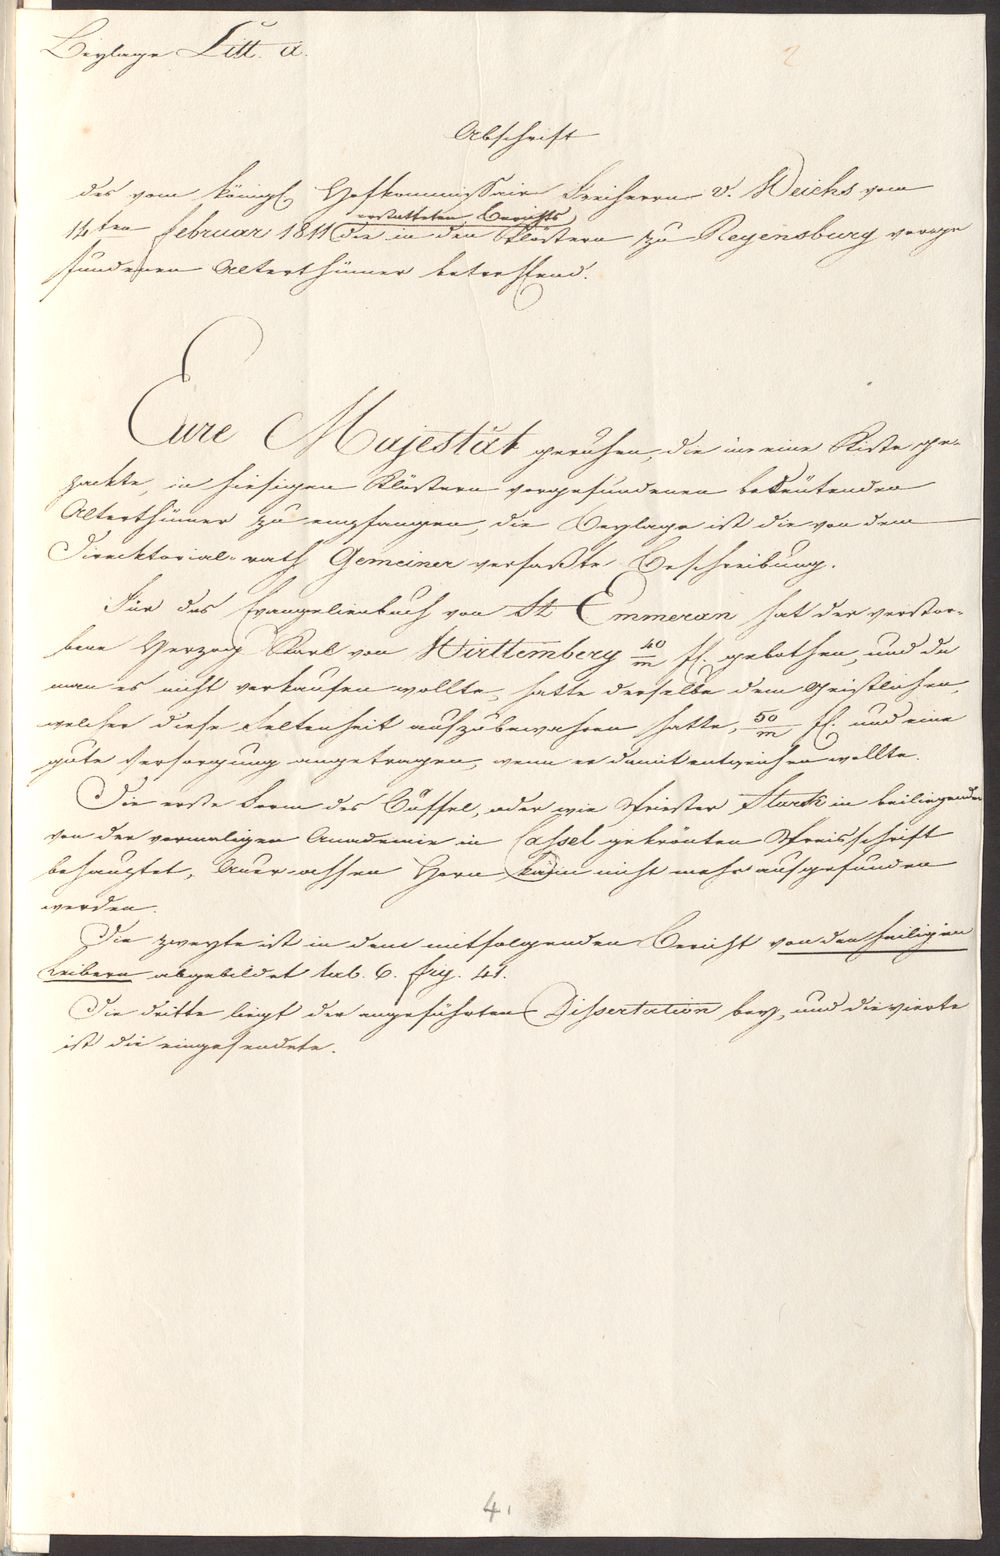 Beylage Litt. a.
2
Abschrift
des vom königl. Hofkommissair Freiherrn v. Weichs vom
erstatteten Berichts,
14ten Februar 1811 die in den Klöstern zu Regensburg vorge
fundenen Alterthümer betreffend.
Eure Majestät geruhen, die in eine Kiste ge-
packte, in hiesigen Klöstern vorgefundenen bedeutenden
Alterthümer zu empfangen, die Beylage ist die von dem
Direcktorial-rath Gemeiner verfaßte Beschreibung.
Für das Evangelienbuch von St Emmeran hat der verstor-
bene Herzog Karl von Wirttemberg 40/m fl. gebothen, und da
man es nicht verkaufen wollte, hatte derselbe dem Geistlichen,
welcher diese Seltenheit aufzubewahren hatte, 50/m fl. und eine
gute Versorgung angetragen, wenn er damit entweichen wollte.
Die erste Form des Büffel, oder wie Priester Stark in beiliegender
von der vormaligen Academie in Cassel gekrönten Preisschrift
behauptet, Auer-ochsen Horn kann nicht mehr aufgefunden
werden.
Die zweyte ist in dem mitfolgenden Bericht von den heiligen
Leibern abgebildet tab. 6. fig. 41.
Die dritte liegt der angeführten Dissertation bey, und die vierte
ist die eingesendete.
4